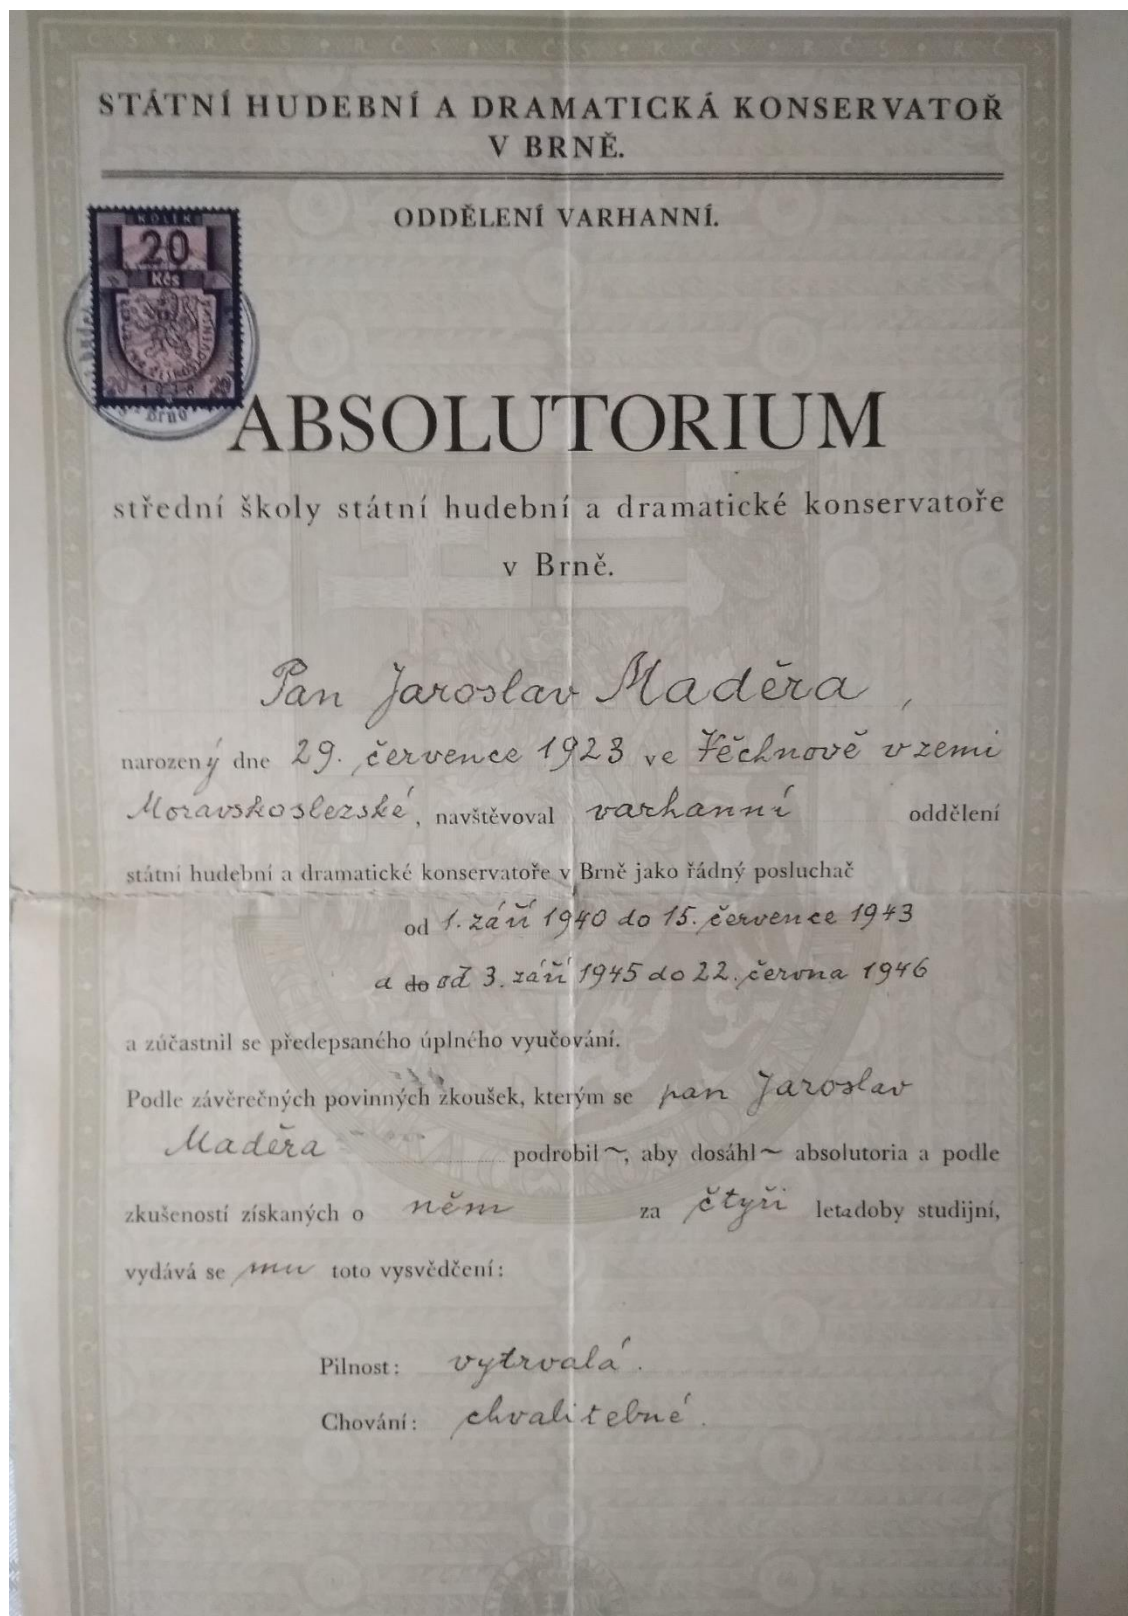 STÁTNÍ HUDEBNÍ A DRAMATICKÁ KONSERVATOŘ
V BRNĚ.
ODDĚLENÍ VARHANNÍ.
KOLEK
20
Kčs
20 1938 20
Brno
ABSOLUTORIUM
střední školy státní hudební a dramatické konservatoře
v Brně.
Pan Jaroslav Maděra,
narozený dne 29. července 1923 ve Věchnově v zemi
Moravskoslezské, navštěvoval varhanní oddělení
státní hudební a dramatické konservatoře v Brně jako řádný posluchač
od 1. září 1940 do 15. července 1943
a do od 3. září 1945 do 22. června 1946
a zúčastnil se předepsaného úplného vyučování.
Podle závěrečných povinných zkoušek, kterým se pan Jaroslav
Maděra podrobil~, aby dosáhl~ absolutoria a podle
zkušeností získaných o něm za čtyři leta doby studijní,
vydává se mu toto vysvědčení:
Pilnost: vytrvalá.
Chování: chvalitebné.